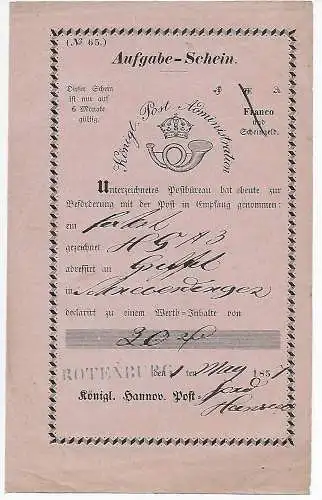 (№ 65.)
Aufgabe-Schein.
Dieser Schein
ist nur auf
6 Monate
gültig.
Franco
und
Scheingeld.
Königl. Post Administration
Unterzeichnetes Postbüreau hat heute zur
Beförderung mit der Post in Empfang genommen:
ein
gezeichnet H G A 3
adressirt an
in
declarirt zu einem Werth-Inhalte von
20
ROTENBURG den 1 ten May 185
Königl. Hannov. Post-